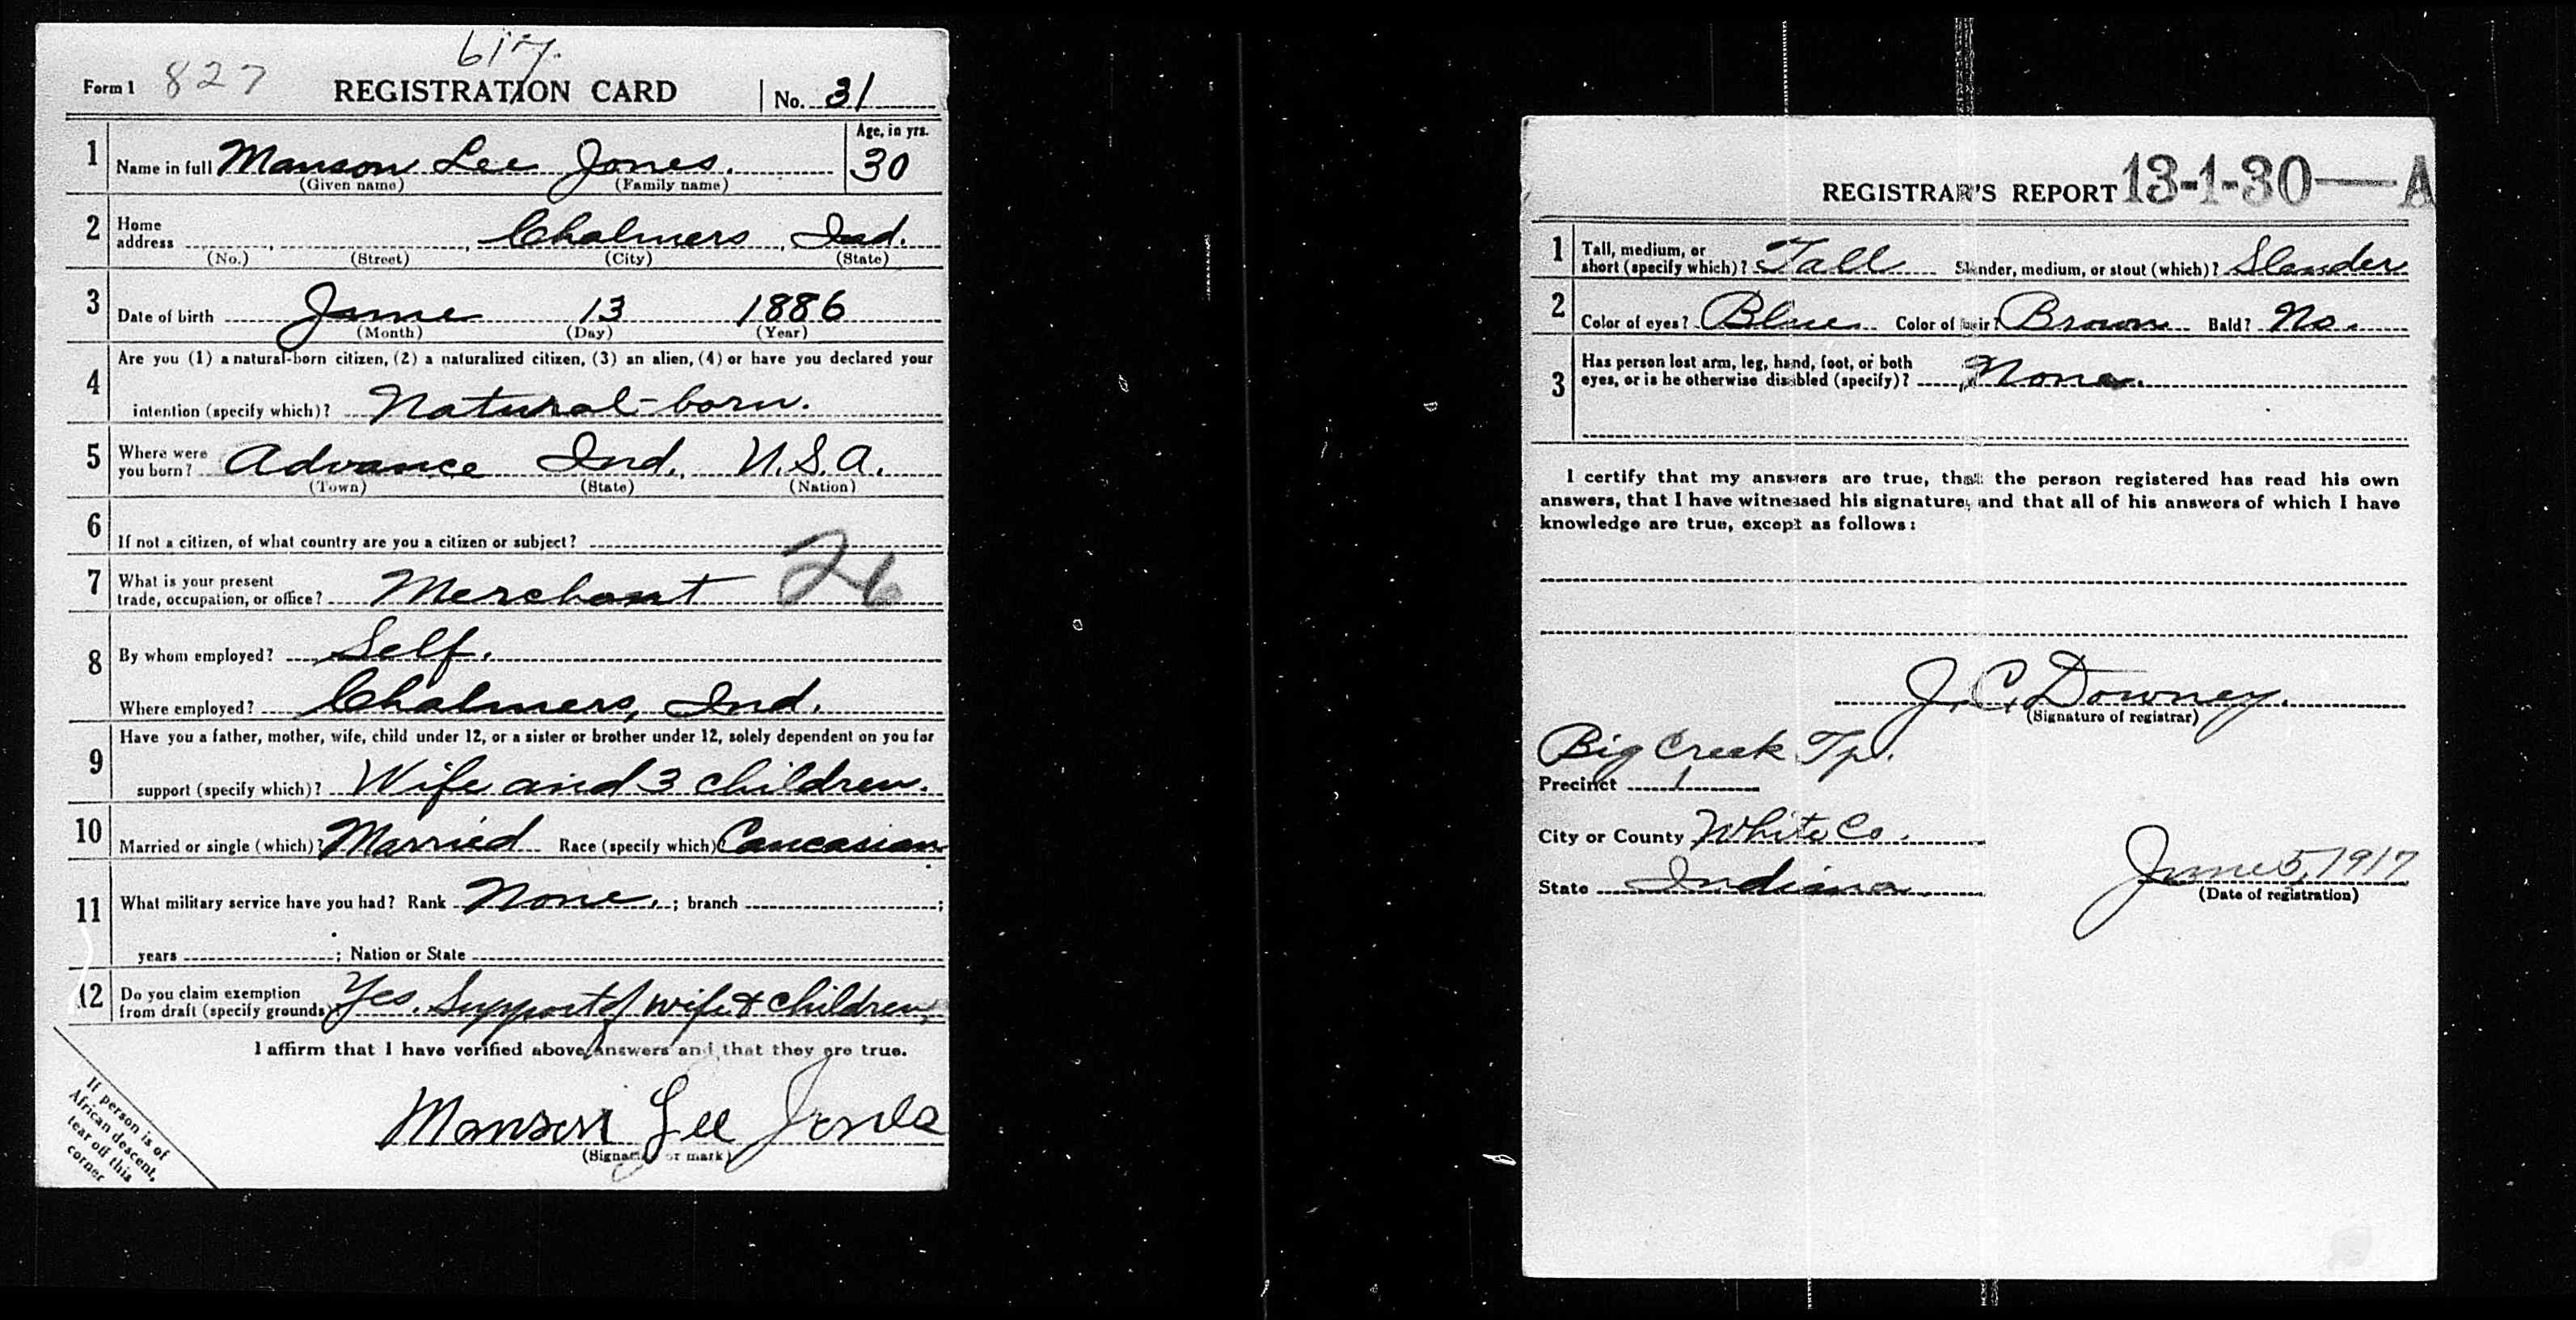 617.
Form 1 827 REGISTRATION CARD No. 31
1 Name in full Manson Lee Jones. Age, in yrs. 30
(Given name) (Family name)
2 Home address Chalmers, Ind.
(No.) (Street) (City) (State)
3 Date of birth June 13 1886
(Month) (Day) (Year)
4 Are you (1) a natural-born citizen, (2) a naturalized citizen, (3) an alien, (4) or have you declared your
intention (specify which)? Natural-born.
5 Where were you born? Advance Ind. U.S.A.
(Town) (State) (Nation)
6 If not a citizen, of what country are you a citizen or subject?
7 What is your present trade, occupation, or office? Merchant 26
8 By whom employed? Self.
Where employed? Chalmers, Ind.
9 Have you a father, mother, wife, child under 12, or a sister or brother under 12, solely dependent on you for
support (specify which)? Wife and 3 children.
10 Married or single (which)? Married Race (specify which) Caucasian
11 What military service have you had? Rank None. ; branch ;
years ; Nation or State
12 Do you claim exemption from draft (specify grounds)? Yes. Support of wife & children,
I affirm that I have verified above answers and that they are true.
Manson Lee Jones
(Signature or mark)
If person is of
African descent,
tear off this
corner
REGISTRAR'S REPORT 13-1-30-A
1 Tall, medium, or short (specify which)? Tall Slender, medium, or stout (which)? Slander
2 Color of eyes? Blue Color of hair? Brown Bald? No.
3 Has person lost arm, leg, hand, foot, or both
eyes, or is he otherwise disabled (specify)? None.
I certify that my answers are true, that the person registered has read his own
answers, that I have witnessed his signature, and that all of his answers of which I have
knowledge are true, except as follows:
J. C. Downey.
(Signature of registrar)
Big Creek Tp.
Precinct 1
City or County White Co.
State Indiana
June 5, 1917
(Date of registration)